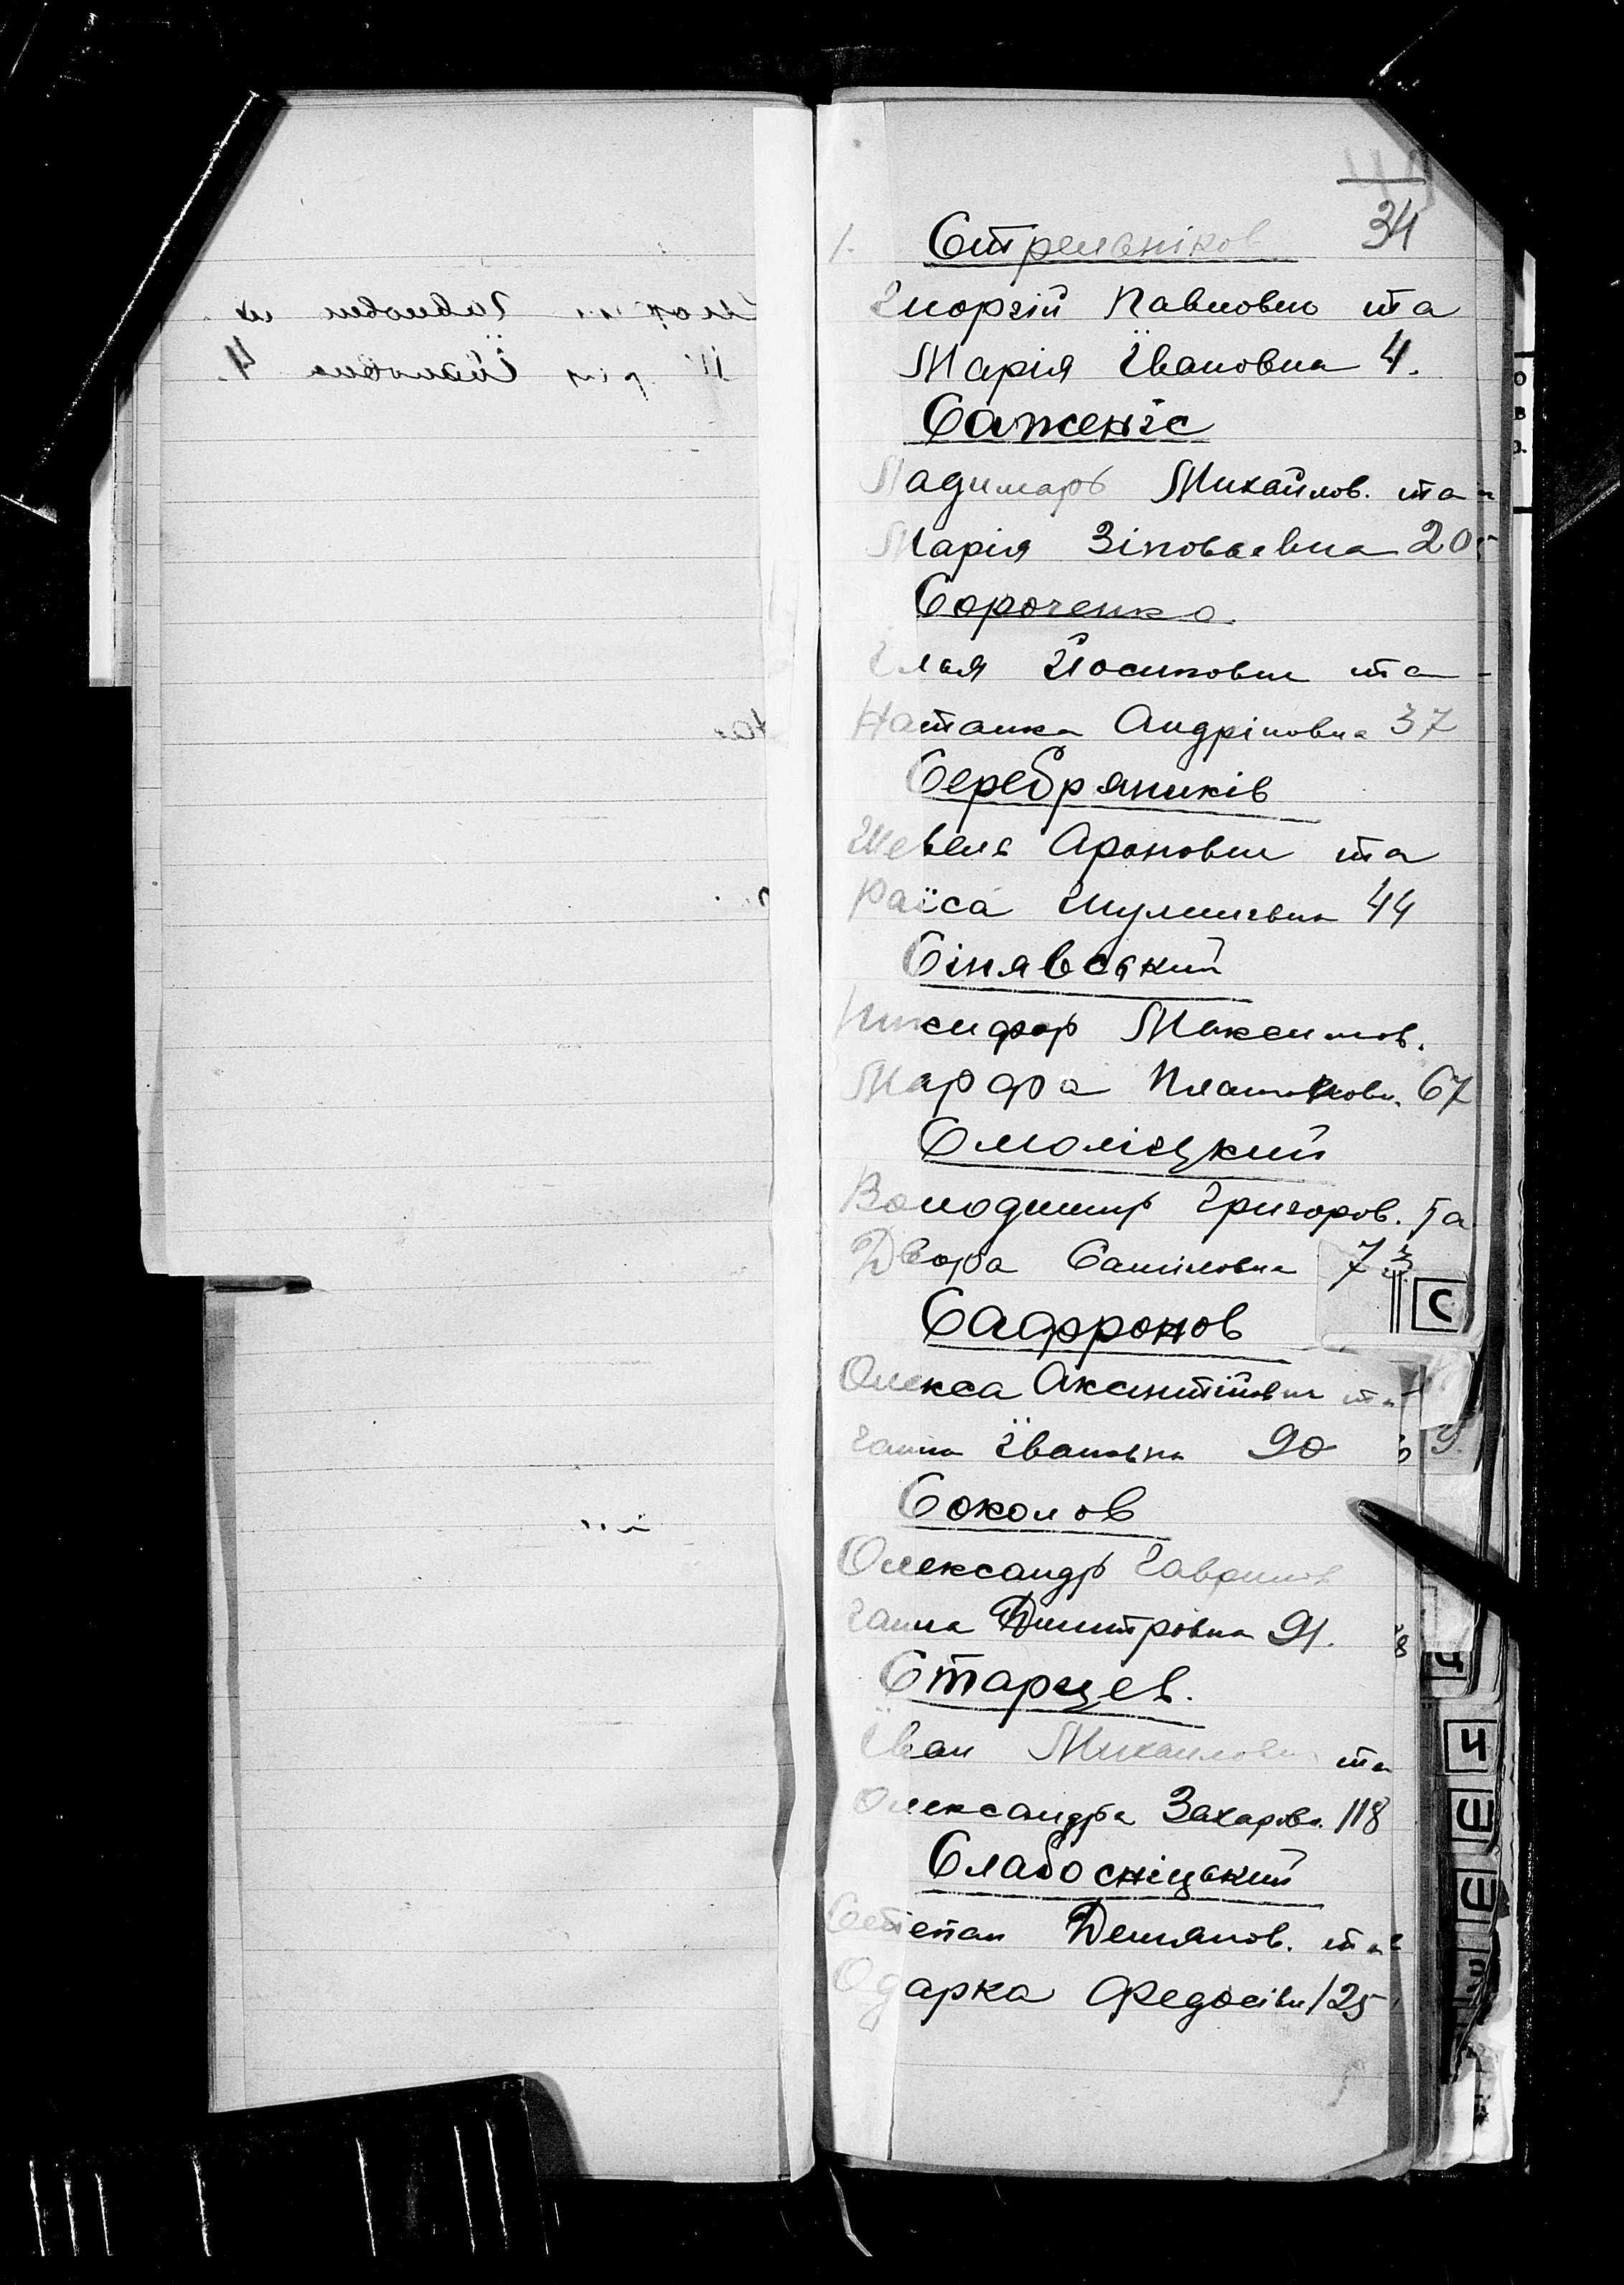 34
1. Стрельніков
Георгій Павлович та
Марія Івановна 4.
Саженіс
Марія Зіновьевна 20
Сороченко
Ілья Йосипович та
Наталка Андріповна 37
Серебряників
Шевель Аронович та
Раїса Шулимовна 44
Сінявський
Никифор Максимов.
Марфа Платонов. 67
Смоліцкий
Володимир Григоров. та
Двора Самиловна 73
С
Сафронов
Олекса Аксентійович та
Ганна Івановна 90
Соколов
Олександр Гаврилов
Ганна Дмитровна 91.
Старцев.
Іван Михайлович та
Олександра Захаровн. 118
Ч
Слабосніцький
Степан Демянов. та
Одарка Федосівн 125